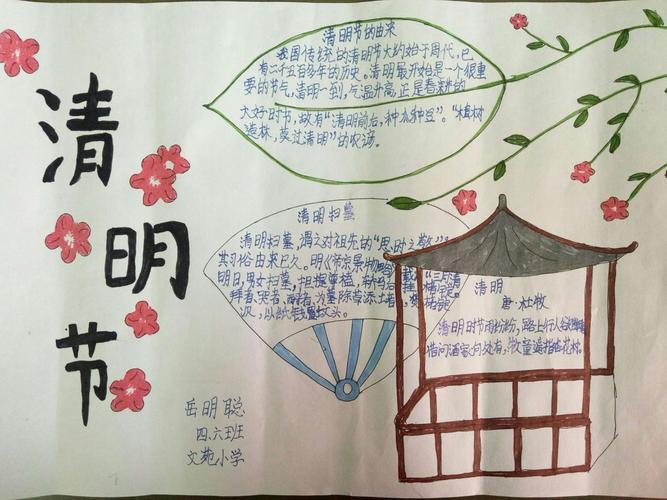 清明节
清明节的由来
我国传统的清明节大约始于周代,已
有二千五百多年的历史。清明最开始是一个很重
要的节气,清明一到,气温升高,正是春耕的
大好时节,故有“清明前后,种瓜种豆”。“植树
造林,莫过清明”的农谚。
清明扫墓
清明扫墓,谓之对祖先的“思时之敬”。
其习俗由来已久。明《帝京景物
明日,男女扫墓,担提尊榼,
拜者、哭者、为墓除草添土者,
以纸钱置坟头。
清明
唐·杜牧
清明时节雨纷纷,路上行人欲
借问酒家何处有,牧童遥指杏花村。
岳明聪
四.六班
文苑小学